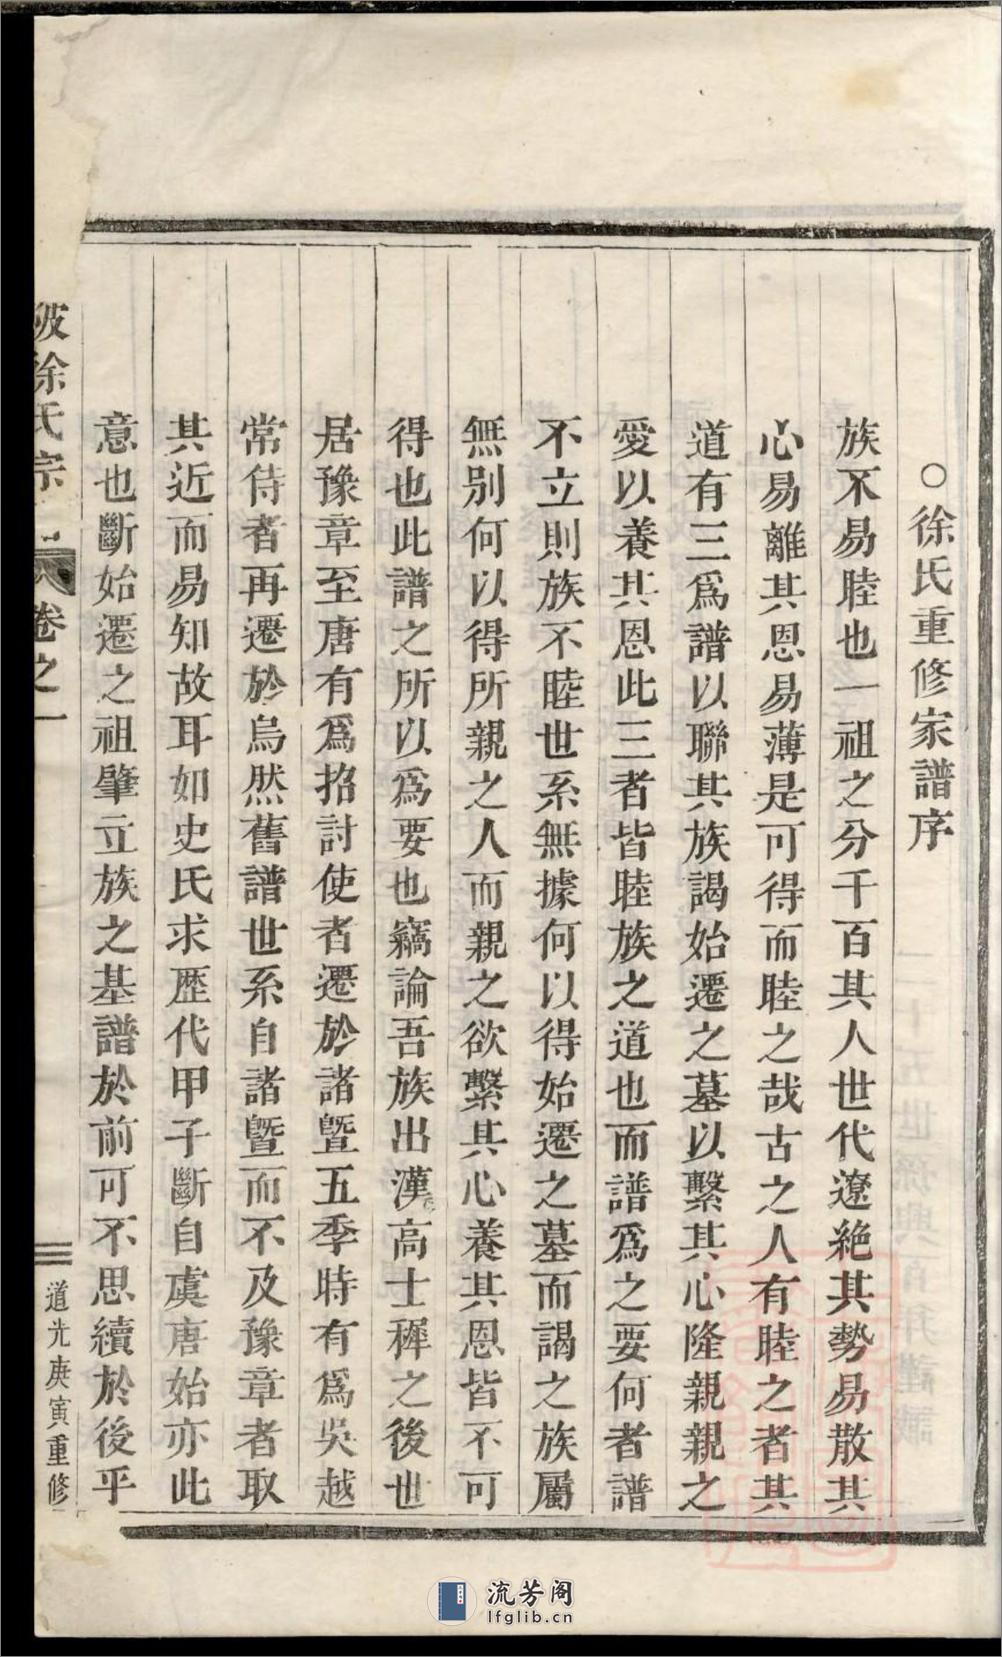 ○徐氏重修家譜序
族不易睦也一祖之分千百其人世代遼絶其勢易散其
心易離其恩易薄是可得而睦之哉古之人有睦之者其
道有三爲譜以聯其族謁始遷之墓以繫其心隆親親之
愛以養其恩此三者皆睦族之道也而譜爲之要何者譜
不立則族不睦世系無據何以得始遷之墓而謁之族屬
無別何以得所親之人而親之欲繫其心養其恩皆不可
得也此譜之所以爲要也竊論吾族出漢高士穉之後世
居豫章至唐有爲招討使者遷於諸暨五季時有爲吳越
常侍者再遷於烏然舊譜世系自諸暨而不及豫章者取
其近而易知故耳如史氏求歷代甲子斷自虞唐始亦此
意也斷始遷之祖肇立族之基譜於前可不思續於後乎
陂徐氏宗
卷之一
道光庚寅重修
流芳阁
lfglib.cn